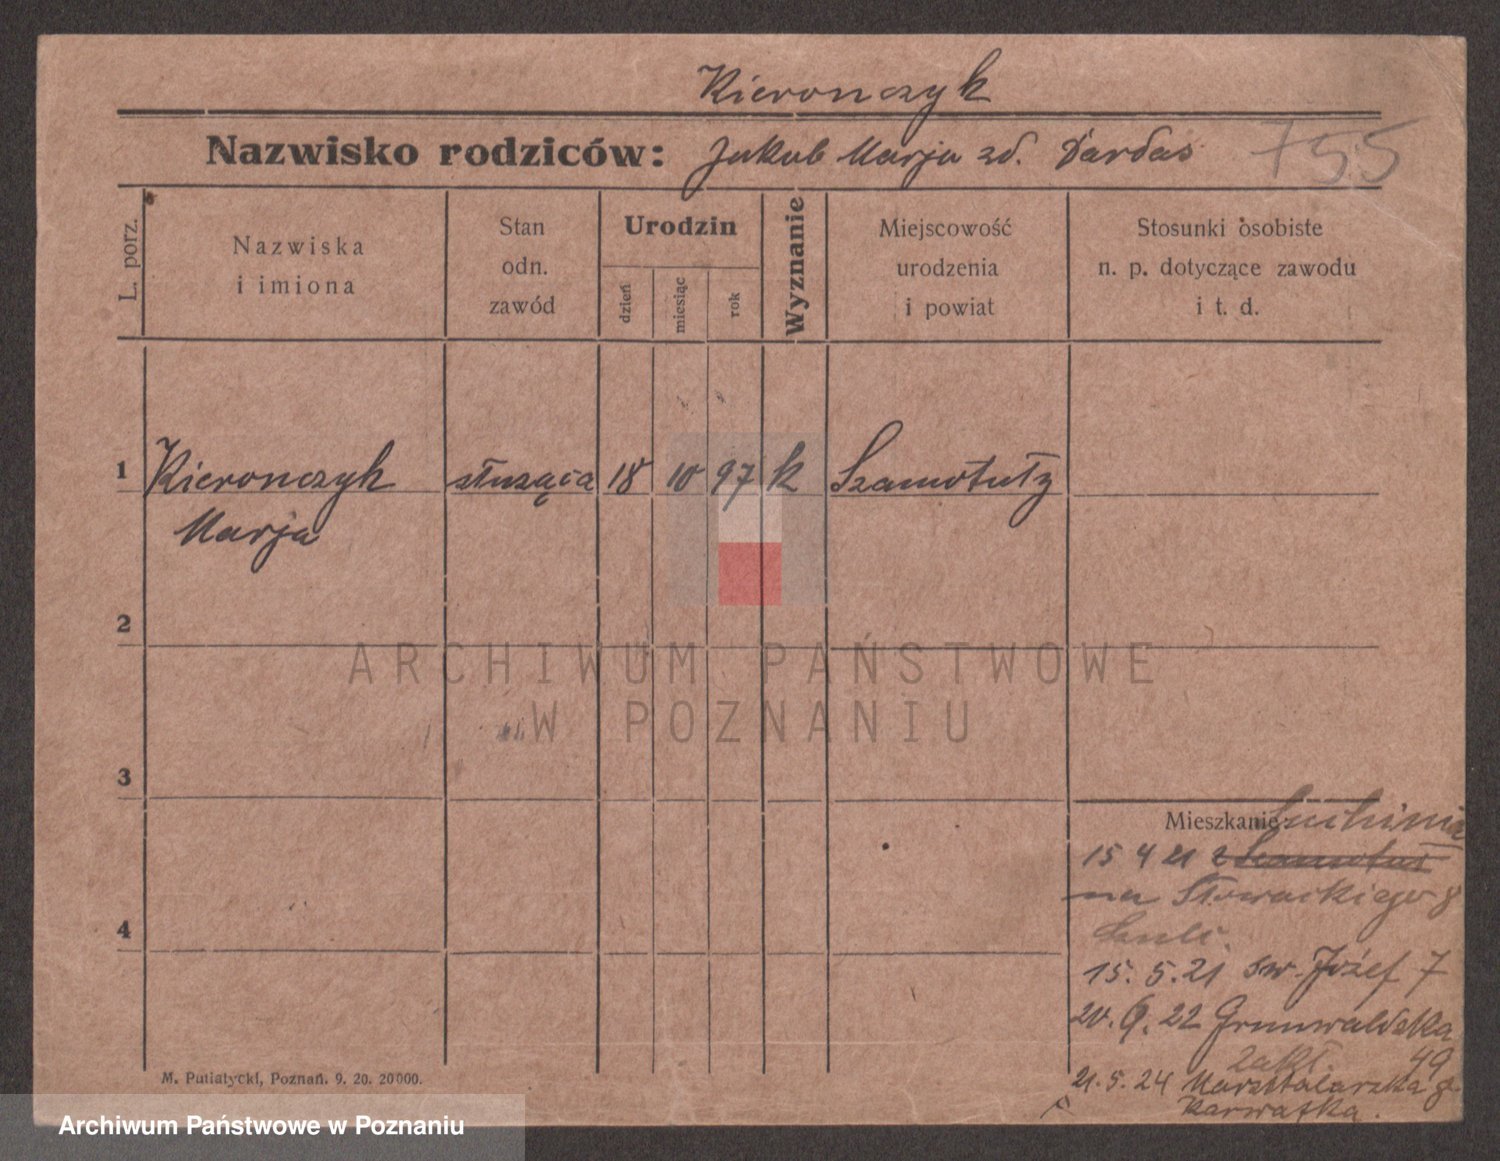 Kieronczyk
Nazwisko rodziców: Jakub Marja zd. Dardas 755
L. porz.
Nazwiska
i imiona
Stan
odn.
zawód
Urodzin
dzień
miesiąc
rok
Wyznanie
Miejscowość
urodzenia
i powiat
Stosunki osobiste
n. p. dotyczące zawodu
i t. d.
1 Kieronczyk służąca 18 10 97 k Szamotuły
Marja
2
ARCHIWUM PAŃSTWOWE
W POZNANIU
3
Mieszkanie:
15 4 21 z Szamotuł
na Słowackiego 8
15. 5. 21 św. Józef 7
20. 6. 22 Grunwaldzka
49
4
21. 5. 24 Marsztalarska 8
M. Putiatycki, Poznań. 9. 20. 20000.
Archiwum Państwowe w Poznaniu